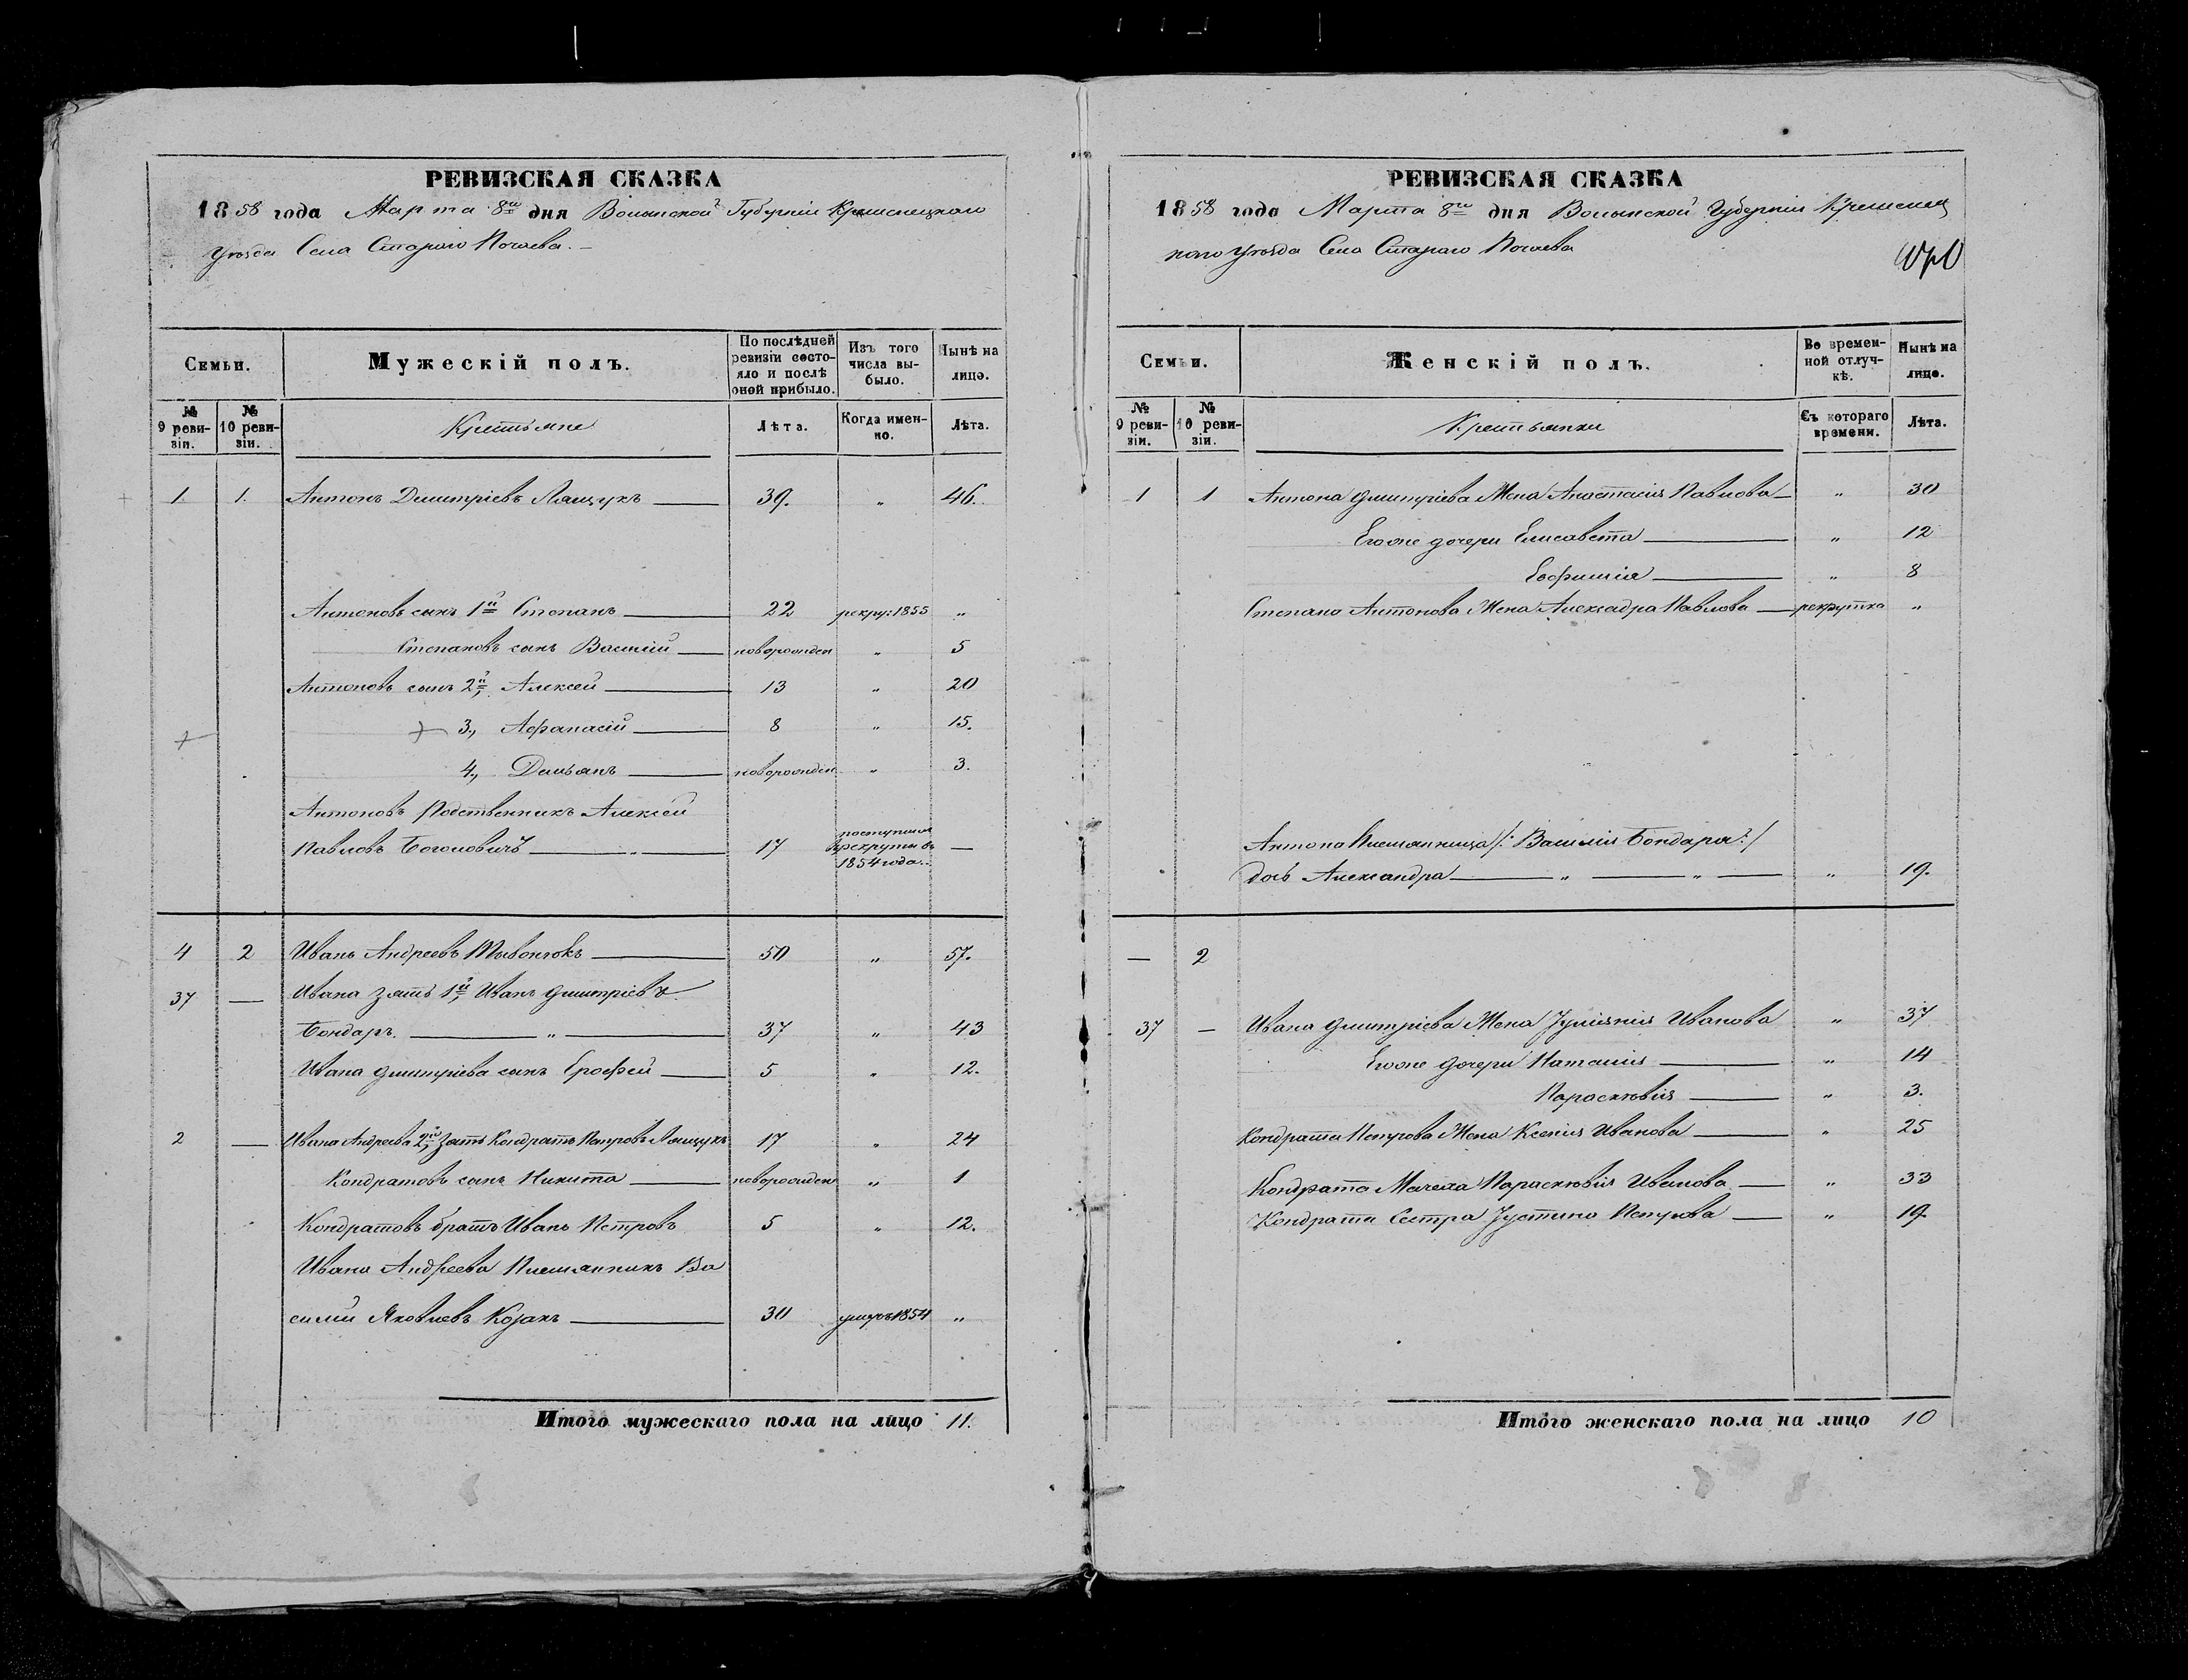 РЕВИЗСКАЯ СКАЗКА
1858 года Марта 8го дня Волынской Губерніи Кременецкаго
Уѣзда Села Стараго Почаева.
Семьи.
Мужескій полъ.
По послѣдней ревизіи состояло и послѣ оной прибыло.
Изъ того числа выбыло.
Нынѣ на лицо.
№ 9 ревизіи.
№ 10 ревизіи.
Крестьяне
Лѣта.
Когда именно.
Лѣта.
1. 1. Антонъ Дмитріевъ Лящукъ 39. „ 46.
Антоновъ сынъ 1й Степанъ 22 рекру: 1855 „
Степановъ сынъ Василій новорожден „ 5
Антоновъ сынъ 2й, Алексей 13 „ 20
3., Афанасій 8 „ 15.
4., Демьянъ новорожден „ 3.
Антоновъ Родственникъ Алексей
Павловъ 17 поступилъ в рекруты въ 1854 года —
4 2 Иванъ Андреевъ 50 „ 57.
37 — Ивана зять 1й, Иванъ Дмитріевъ
Бондарь. „ 37 „ 43
Ивана Дмитріева сынъ Ерофей 5 „ 12.
2 — Ивана Андреева 2й, зять Кондратъ Петровъ Лящукъ 17 „ 24
Кондратовъ сынъ Никита новорожден „ 1
Кондратовъ братъ Иванъ Петровъ 5 „ 12.
Ивана Андреева Племянникъ Ва
силій Яковлевъ Козакъ 30 умеръ 1854 „
Итого мужескаго пола на лицо 11.
РЕВИЗСКАЯ СКАЗКА
1858 года Марта 8го дня Волынской Губерніи Кременец
каго Уѣзда Села Стараго Почаева
Семьи.
Женскій полъ.
Во временной отлучкѣ.
Нынѣ на лицо.
№ 9 ревизіи.
№ 10 ревизіи.
Крестьянки
Съ котораго времени.
Лѣта.
1 1 Антона Дмитріева Жена Анастасія Павлова „ 30
Его же дочери Елисавета „ 12
Евфимія „ 8
Степана Антонова Жена Александра Павлова рекрутка „
Антона Племянница /: Василія Бондаря :/
дочь Александра „ „ „ 19.
— 2
37 — Ивана Дмитріева Жена Іуліянія Иванова „ 37
Его же дочери Наталія „ 14
Параскевія „ 3.
Кондрата Петрова Жена Ксенія Иванова „ 25
Кондрата Мачеха Параскевія Иванова „ 33
Кондрата Сестра Іустина Петрова „ 19.
Итого женскаго пола на лицо 10